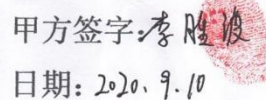 甲方签字:李胜波
日期: 2020.9.10